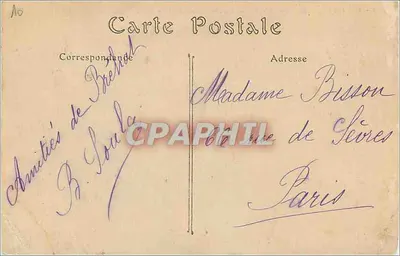 10
Carte Postale
Correspondance
Adresse
Amitiés de Brehat
B. Soula
Madame Bisson
CPAPHIL
67 rue de Sèvres
Paris